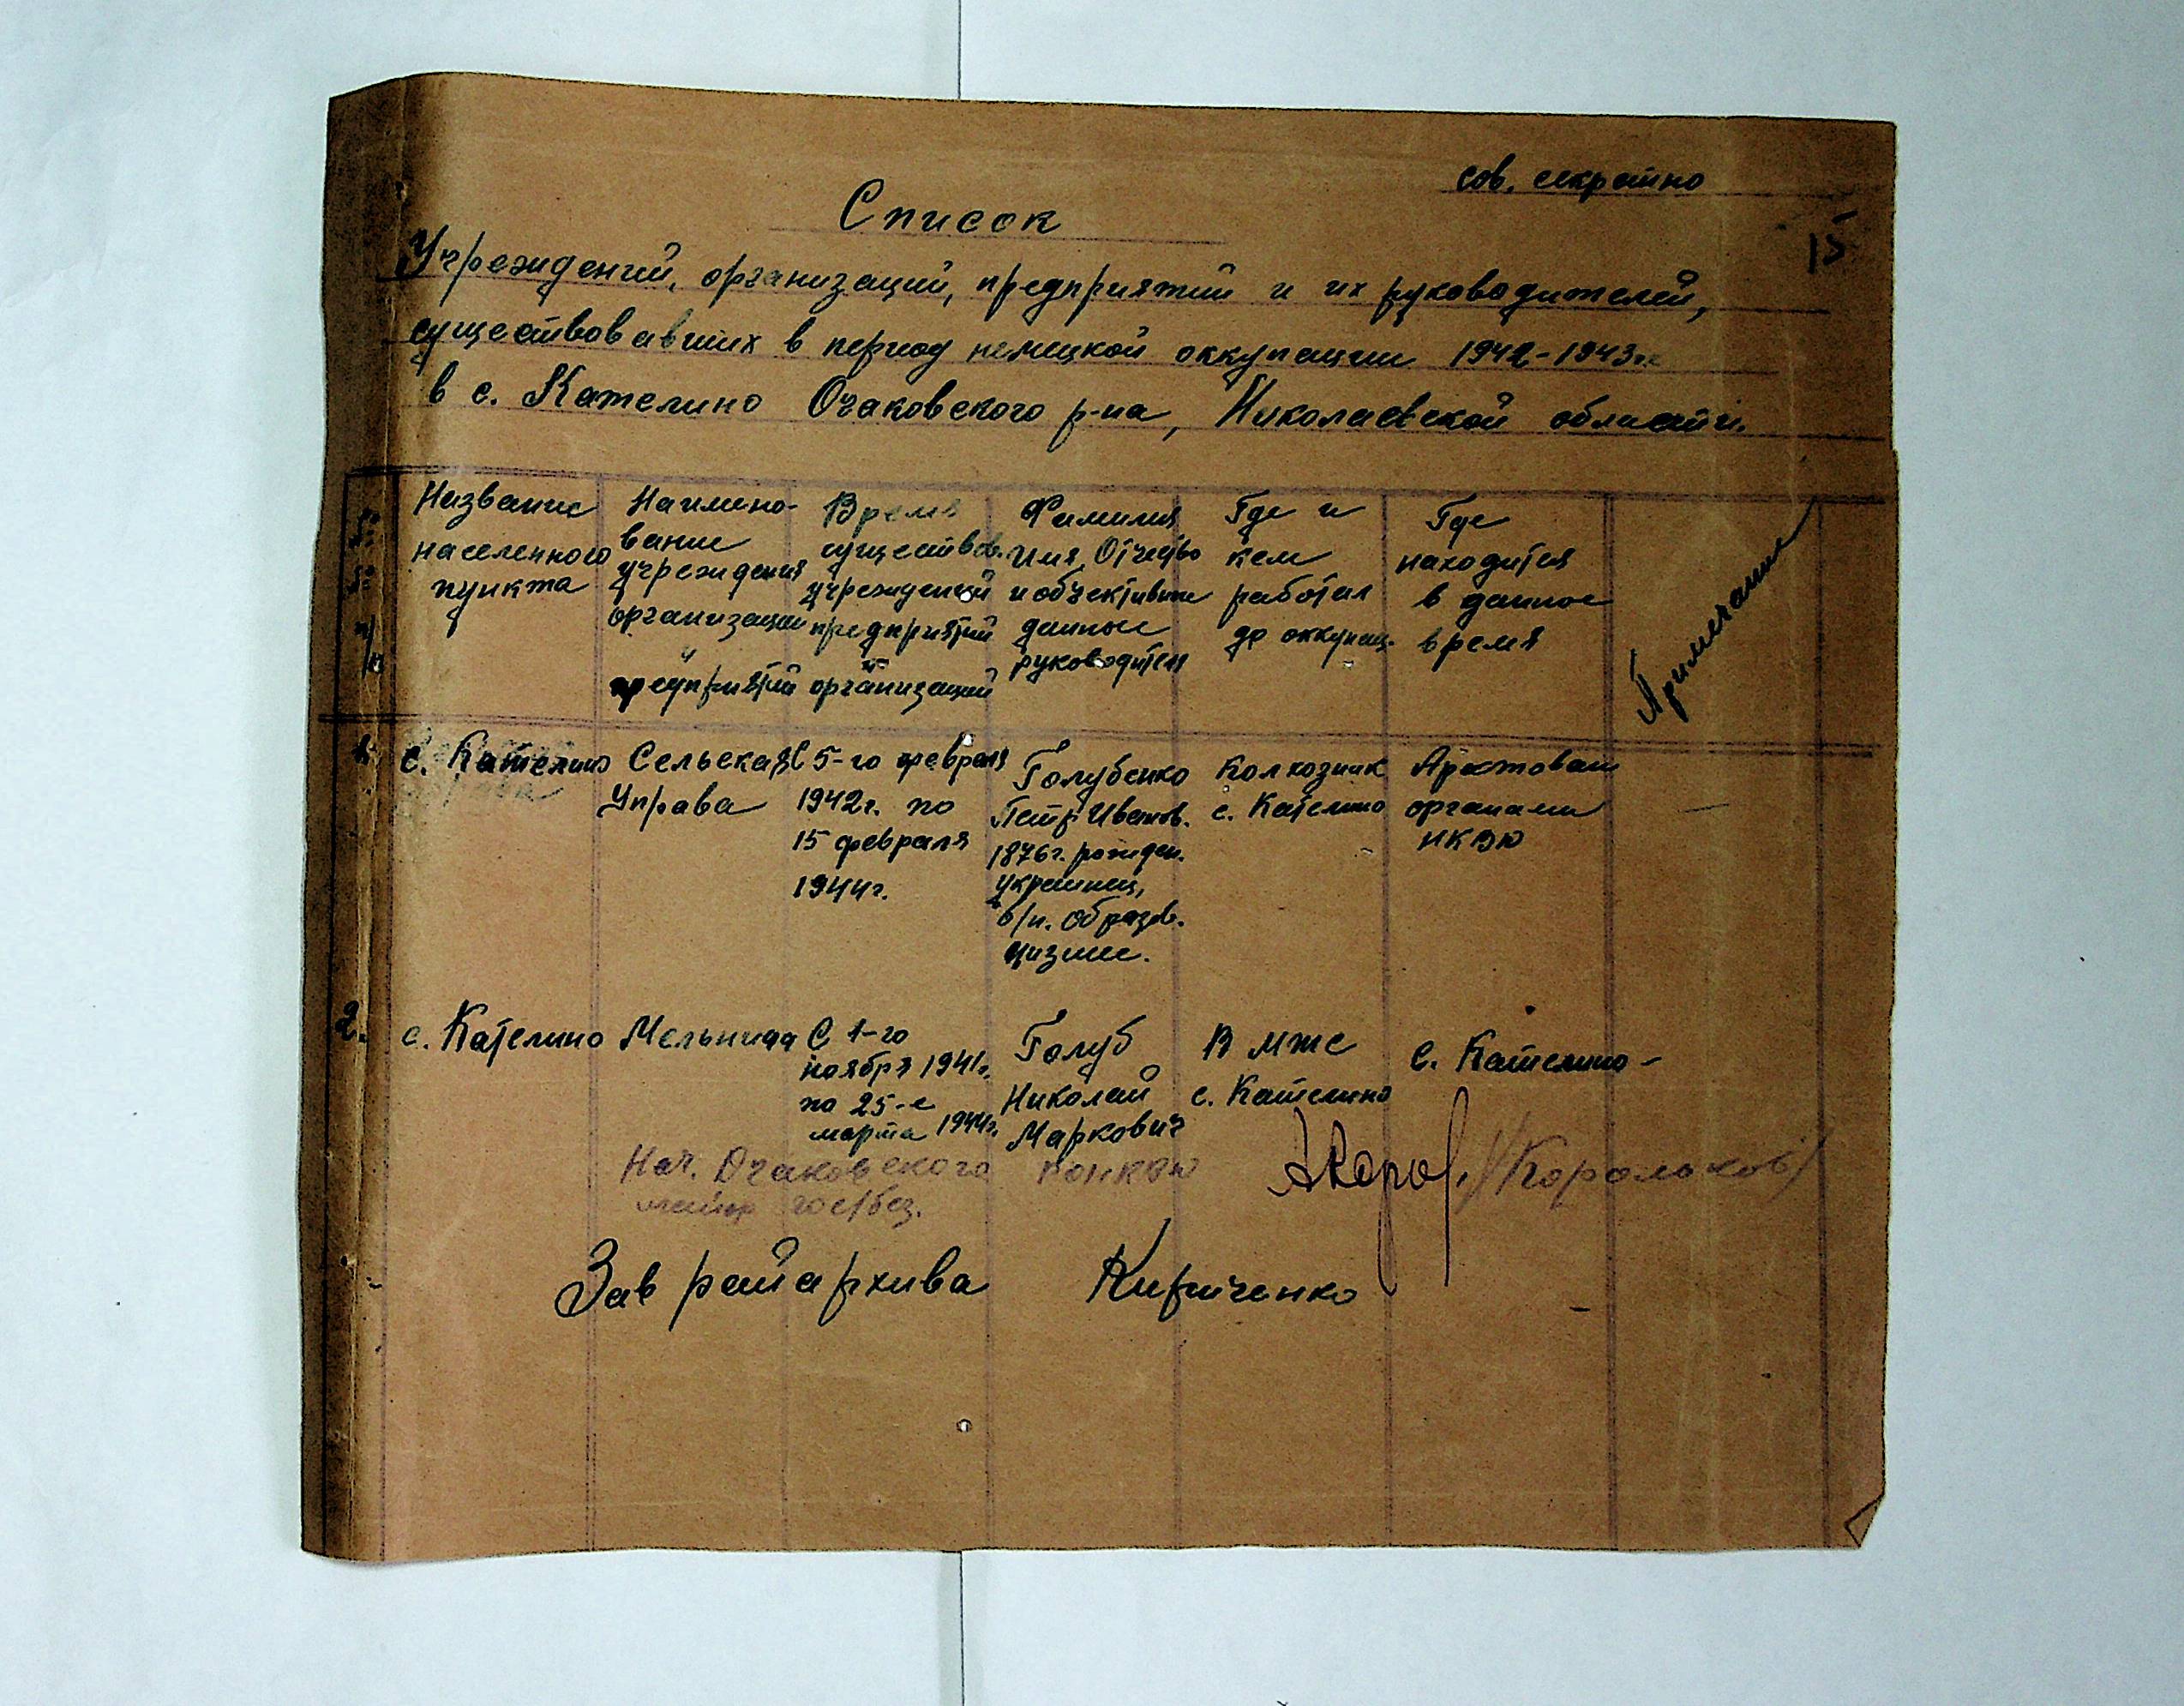 сов. секретно
15
Список
Учреждений, организаций, предприятий и их руководителей,
существовавших в период немецкой оккупации 1942-1943гг
в с. Кателино Очаковского р-на, Николаевской области.
№№ п/п
Название
населенного
пункта
Наимено-
вание
учреждения
организации
и
предприятий
Время
существов.
учреждений
предприятий
и
организаций
Фамилия
Имя, Отчество
и объективные
данные
руководителя
Где и
кем
работал
до оккупац.
Где
находится
в данное
время
Примечание
1.
с. Кателино
Сельская
Управа
С 5-го февраля
1942г. по
15 февраля
1944г.
Голубенко
Петр Иванов.
1876г. рожден.
украинец,
б/п. образов.
низшее.
Колхозник
с. Кателино
Арестован
органами
НКВД
—
2.
с. Кателино
Мельница
С 1-го
ноября 1941г.
по 25-е
марта 1944г.
Голуб
Николай
Маркович
В мтс
с. Кателино
с. Кателино -
Нач. Очаковского РОНКВД
/Корольков/
майор гос/без.
Зав райархива Кириченко